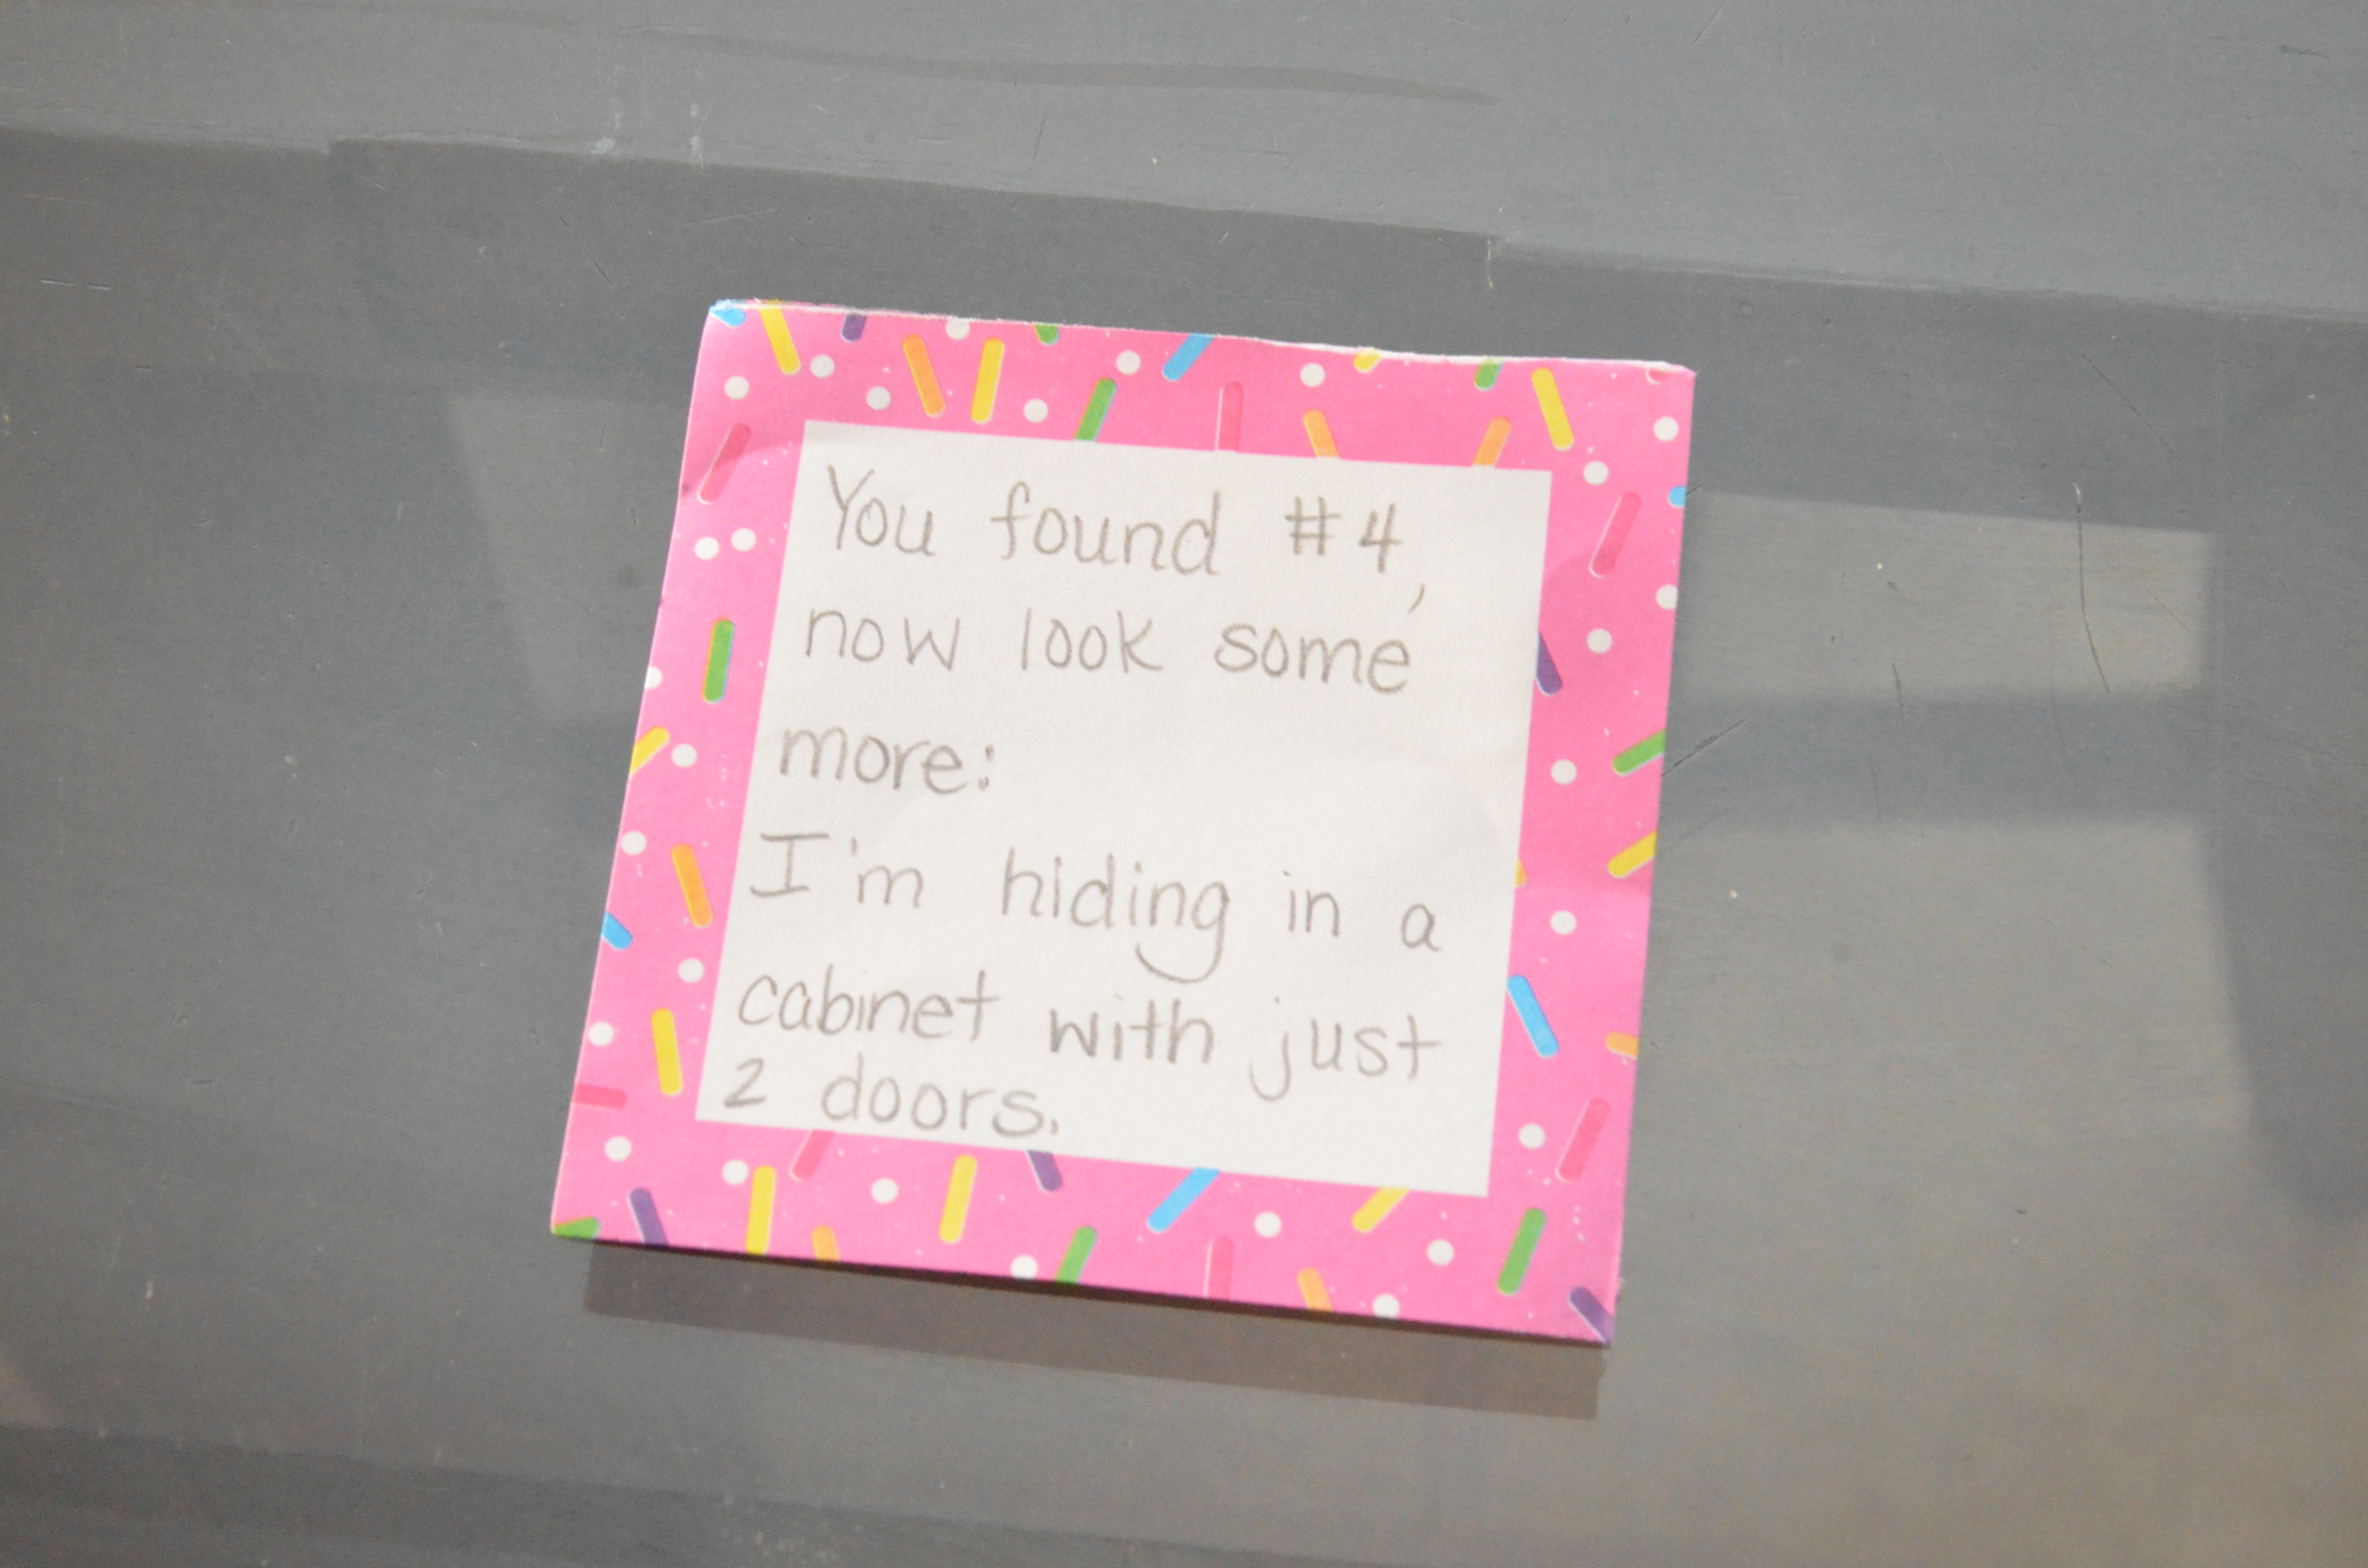 You found #4,
now look some
more:
I'm hiding in a
cabinet with just
2 doors.